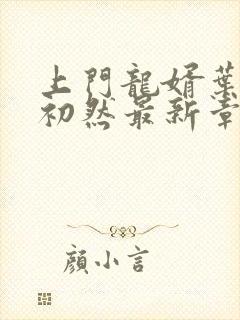 上門龍婿葉
初然最新章
顏小言